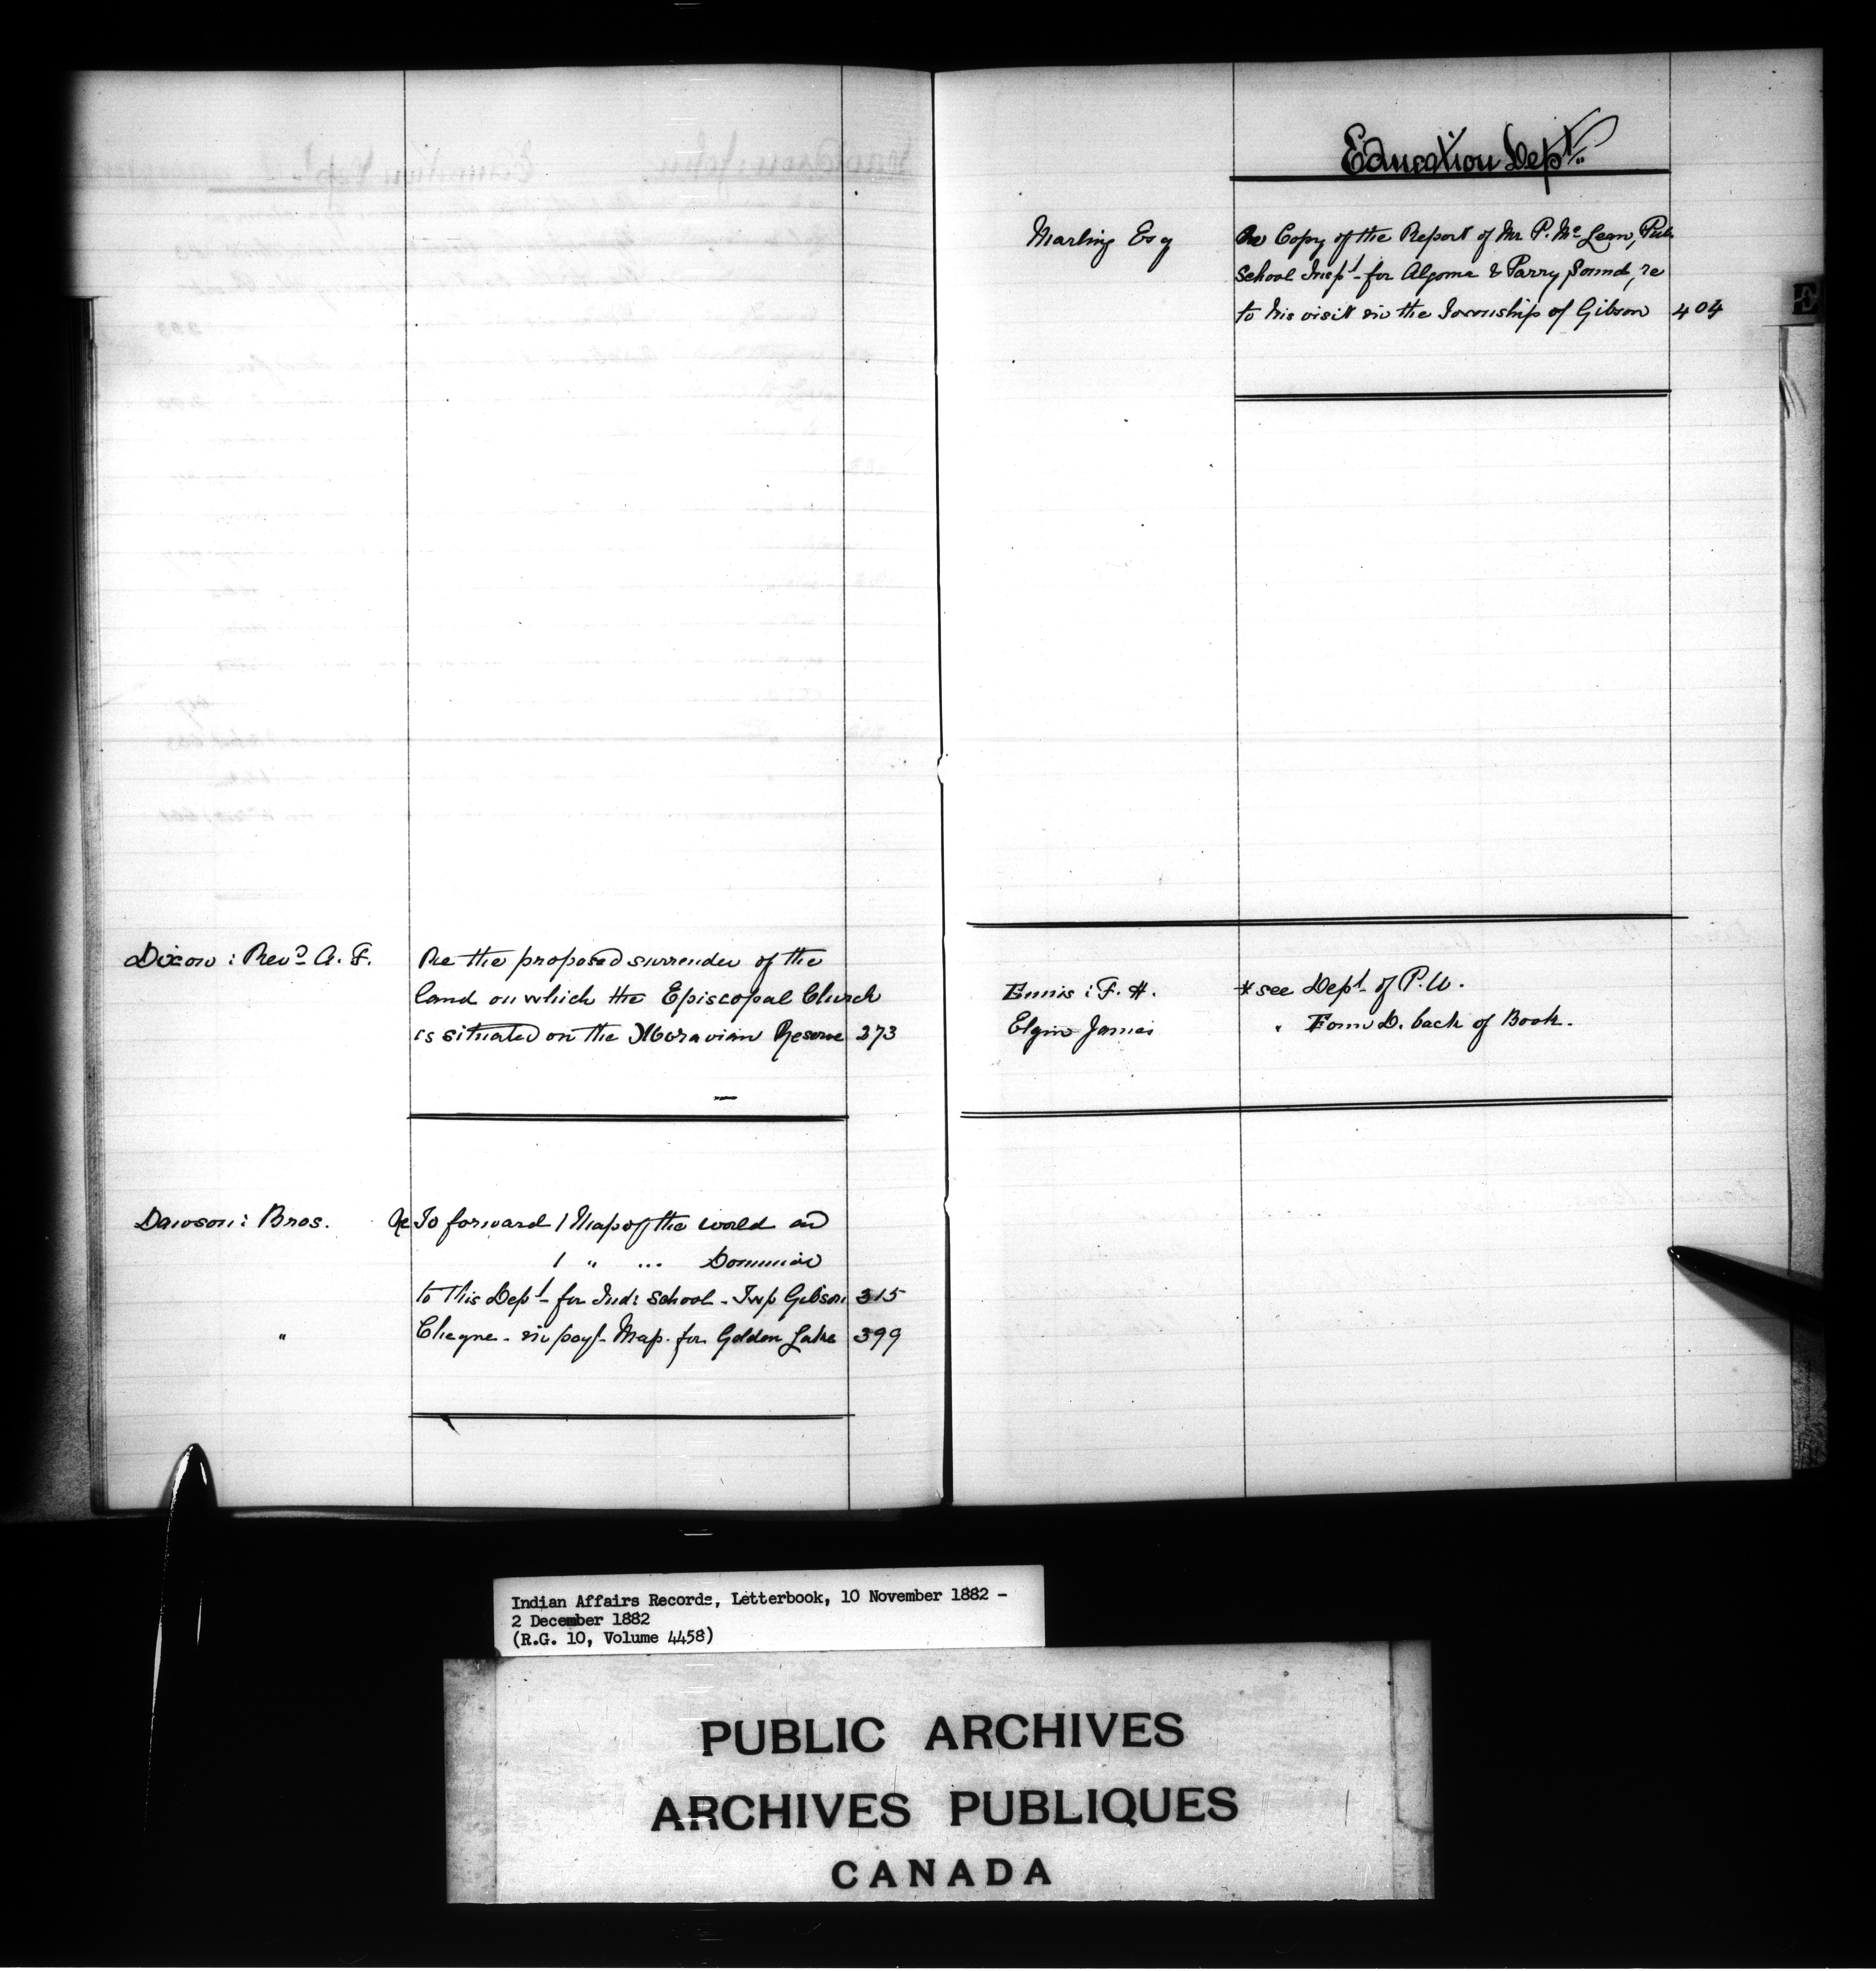 Dixon : Revd A. F. Re the proposed surrender of the
land on which the Episcopal Church
is situated on the Moravian Reserve 273
Dawson : Bros. Re To forward 1 Map of the world and
1 " ... Dominion
to this Dept- for Indn School - Twp Gibson 315
" Cheque - in payt- Map. for Golden Lake 399
Education Dept
E
Marling Esq Re Copy of the Report of Mr P. McLean, Pub.
School Inspt- for Algoma & Parry Sound, re
to his visit in the Township of Gibson 404
Ennis : F. H. * see Dept- of P.W.
Elgin James " Form D. back of Book.
Indian Affairs Records, Letterbook, 10 November 1882 -
2 December 1882
(R.G. 10, Volume 4458)
PUBLIC ARCHIVES
ARCHIVES PUBLIQUES
CANADA